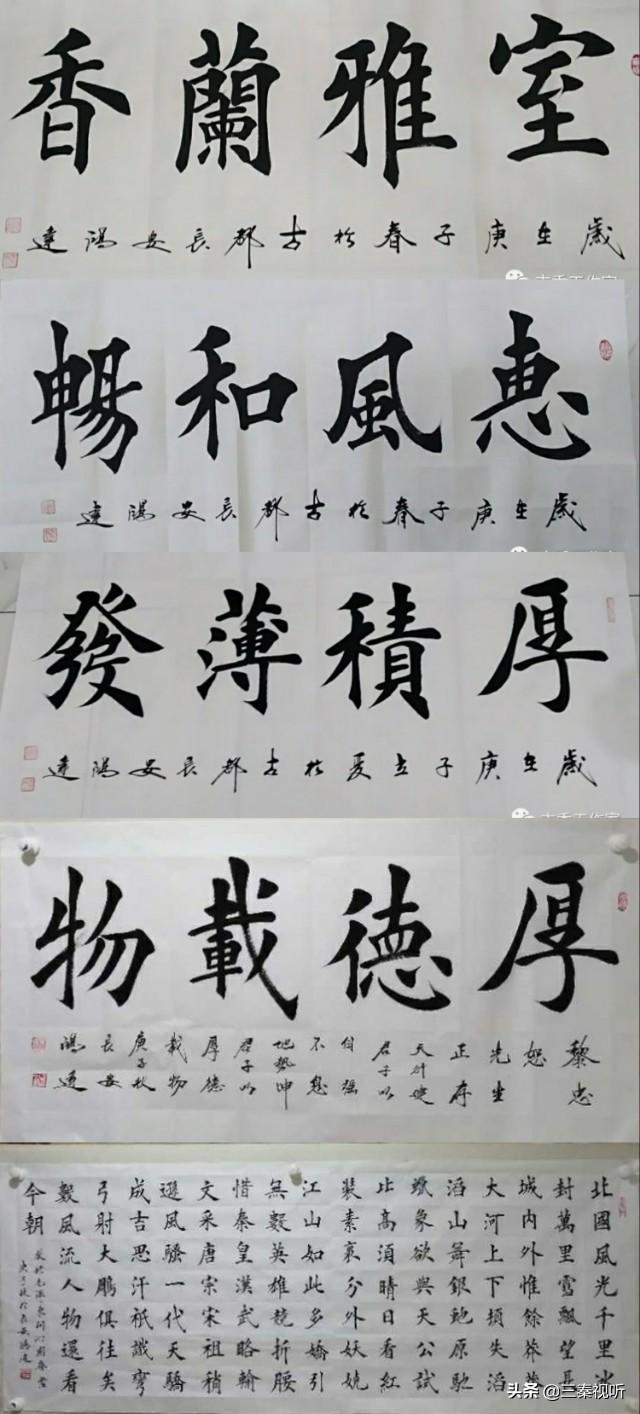 室雅蘭香
歲在庚子春於古都長安鴻達
惠風和暢
歲在庚子春於古都長安鴻達
厚積薄發
歲在庚子立夏於古都長安鴻達
厚德載物
黎忠
恕
先生
正存
天行健
君子以
自强
不息
地勢坤
君子以
厚德
載物
庚子秋
長安
鴻達
北國風光千里冰
封萬里雪飄望長
城內外惟餘莽莽
大河上下頓失滔
滔山舞銀蛇原馳
蠟象欲與天公試
比高須晴日看紅
裝素裹分外妖嬈
江山如此多嬌引
無數英雄競折腰
惜秦皇漢武略輸
文采唐宗宋祖稍
遜風騷一代天驕
成吉思汗祇識彎
弓射大鵬俱往矣
數風流人物還看
今朝
毛澤東詞沁園春雪
庚子秋於長安鴻達
头条@三秦视听